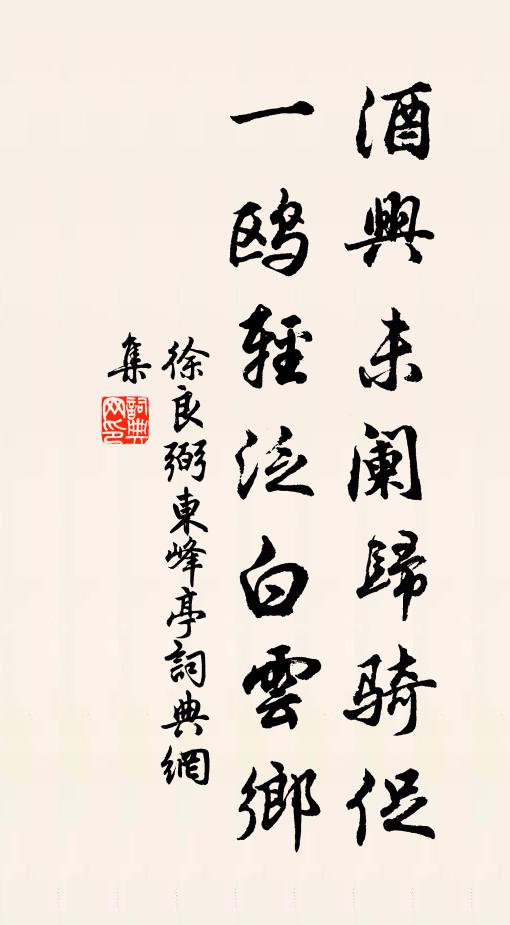 酒興未闌歸騎促
一鷗輕泛白雲鄉
徐良弼東峰亭詞典網
集
詞典網印